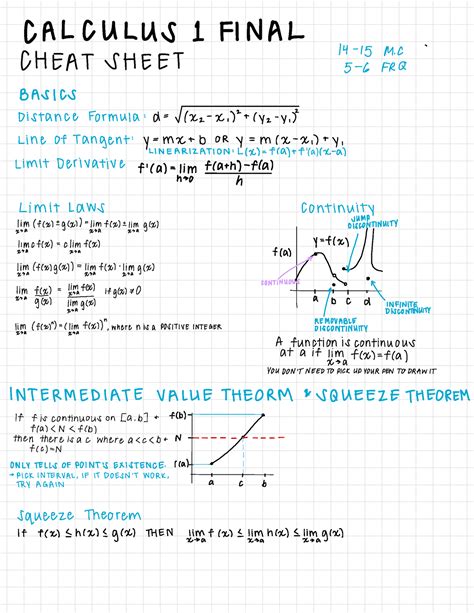 CALCULUS 1 FINAL
CHEAT SHEET
14-15 M.C
5-6 FRQ
BASICS
Distance Formula: d = √(x₂ - x₁)² + (y₂ - y₁)²
Line of Tangent: y = mx + b OR y = m(x - x₁) + y₁
LINEARIZATION: L(x) = f(a) + f'(a)(x-a)
Limit Derivative f'(a) = lim h→0 f(a+h) - f(a) / h
Limit Laws
lim x→a (f(x) ± g(x)) = lim x→a f(x) ± lim x→a g(x)
lim x→a c f(x) = c lim x→a f(x)
lim x→a (f(x)g(x)) = lim x→a f(x) · lim x→a g(x)
lim x→a f(x) / g(x) = lim x→a f(x) / lim x→a g(x) if g(x) ≠ 0
lim x→a (f(x)ⁿ) = (lim x→a f(x))ⁿ, where n is a POSITIVE INTEGER
Continuity
JUMP
DISCONTINUITY
y = f(x)
f(a)
CONTINUOUS
a b c d
INFINITE
DISCONTINUITY
REMOVABLE
DISCONTINUITY
A function is continuous
at a if lim x→a f(x) = f(a)
YOU DON'T NEED TO PICK UP YOUR PEN TO DRAW IT
INTERMEDIATE VALUE THEORM & SQUEEZE THEOREM
If f is continuous on [a,b] +
f(a) < N < f(b)
then there is a c where a<c<b +
f(c) = N
ONLY TELLS OF POINT'S EXISTENCE.
→ PICK INTERVAL, IF IT DOESN'T WORK,
TRY AGAIN
f(b)
N
f(a)
a c b
Squeeze Theorem
If f(x) ≤ h(x) ≤ g(x) THEN lim x→a f(x) ≤ lim x→a h(x) ≤ lim x→a g(x)